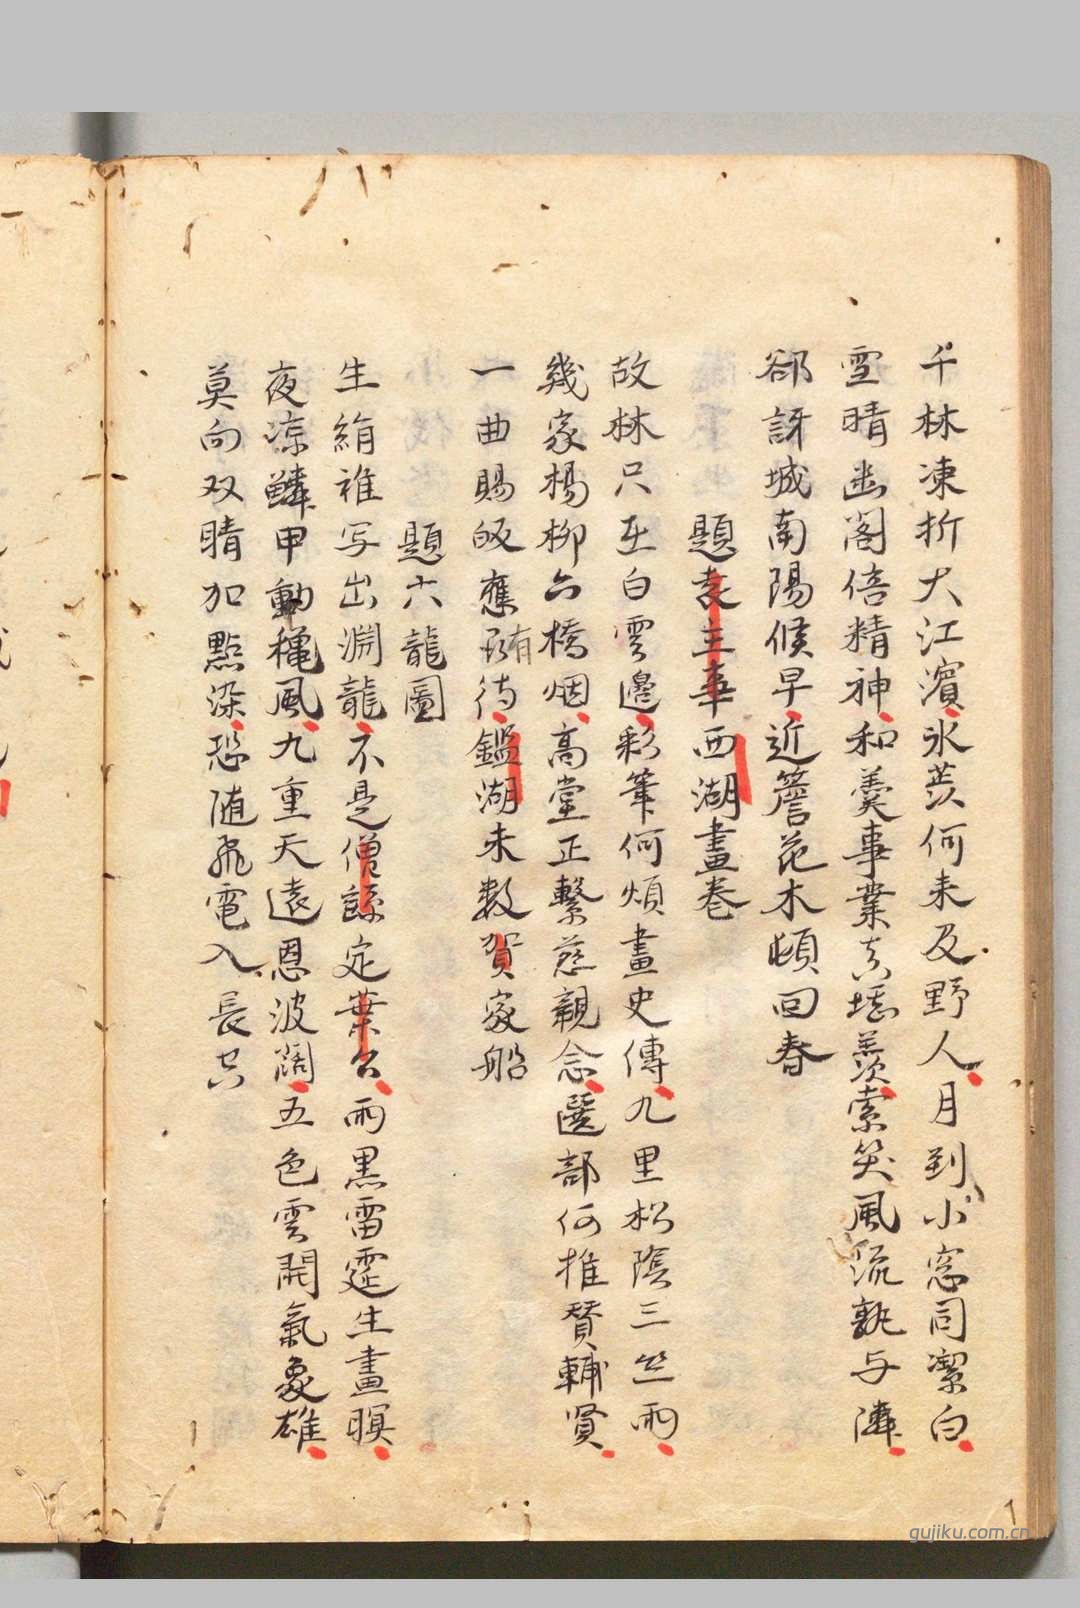 千林凍折大江濱氷蕊何来及野人月到小窓同潔白
雪晴幽閣倍精神和羹事業真堪羨索笑風流孰与隣
郤訝城南陽候早近簷花木頓回春
題袁主事西湖畫巻
故林只在白雲邊彩筆何煩畫史傳九里松陰三竺雨
幾家楊柳六橋烟高堂正繫慈親念選部何推賛輔賢
一曲賜皈應有待鑑湖未数賀家船
題六龍圖
生絹誰写出淵龍不是僧繇定葉公雨黒雷霆生畫暝
夜凉鱗甲動龝風九重天遠恩波闊五色雲開氣象雄
莫向双睛加點染恐随飛電入長空
gujiku.com.cn